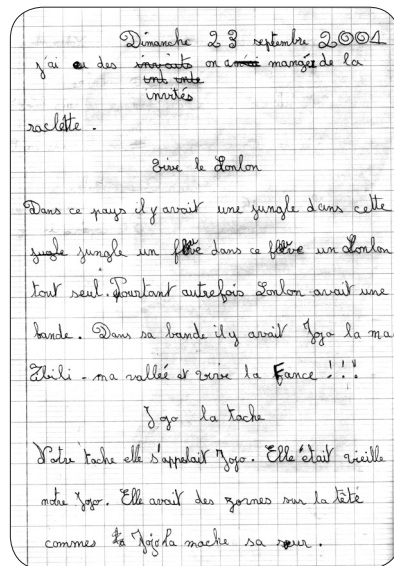 Dimanche 23 septembre 2001
j'ai eu des invités on a mangé de la
raclette.
Vive le Lonlon
Dans ce pays il y avait une jungle dans cette
jungle un fleve dans ce fleve un Lonlon
tout seul. Pourtant autrefois Lonlon avait une
bande. Dans sa bande il y avait Jojo la ma
Zibili - ma vallée et vive la Fance !!!
Jojo la tache
Notre tache elle s'appelait Jojo. Elle était vieille
notre Jojo. Elle avait des zornes sur la tété
commes Jojo la moche sa seur.